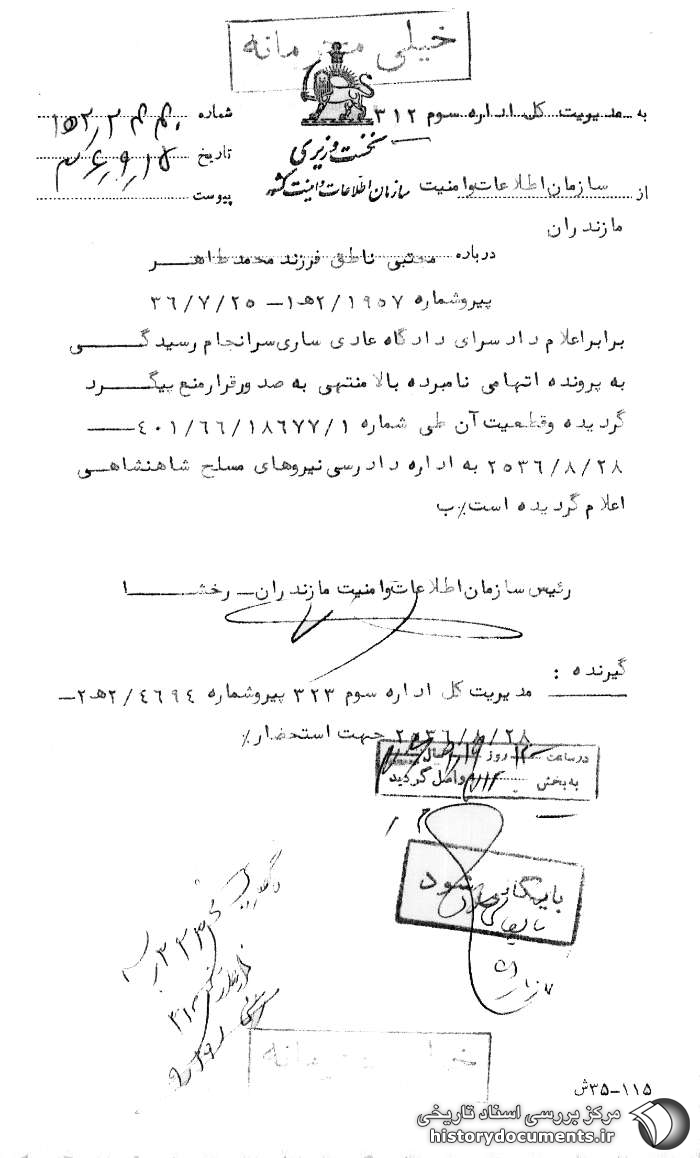 خیلی محرمانه
به مدیریت کل اداره سوم ۳۱۲
شماره
نخست وزیری
تاریخ ۳۶٫۹٫۱۵
سازمان اطلاعات و امنیت کشور
پیوست
از سازمان اطلاعات و امنیت
مازندران
درباره مجتبی ناطق فرزند محمد طاهر
پیرو شماره ۲/۱۹۵۷هـ۱ــ ۳۶/۷/۲۵
برابر اعلام دادسرای دادگاه عادی ساری سرانجام رسیدگی
به پرونده اتهامی نامبرده بالا منتهی به صدور قرار منع پیگرد
گردیده و قطعیت آن طی شماره ۴۰۱/۶۶/۱۸۶۷۷/۱ ــ
۲۵۳۶/۸/۲۸ به اداره دادرسی نیروهای مسلح شاهنشاهی
اعلام گردیده است٪ب
رئیس سازمان اطلاعات و امنیت مازندران ــ رخشا
گیرنده :
مدیریت کل اداره سوم ۳۲۳ پیرو شماره ۲/۴۶۹۴هـ۲ــ
۲۵۳۶/۸/۲۸ جهت استحضار٪
در ساعت روز
به بخش ۳۱۲ واصل گردید
بایگانی شود
خیلی محرمانه
۱۱۵-۳۵ش
مرکز بررسی اسناد تاریخی
historydocuments.ir